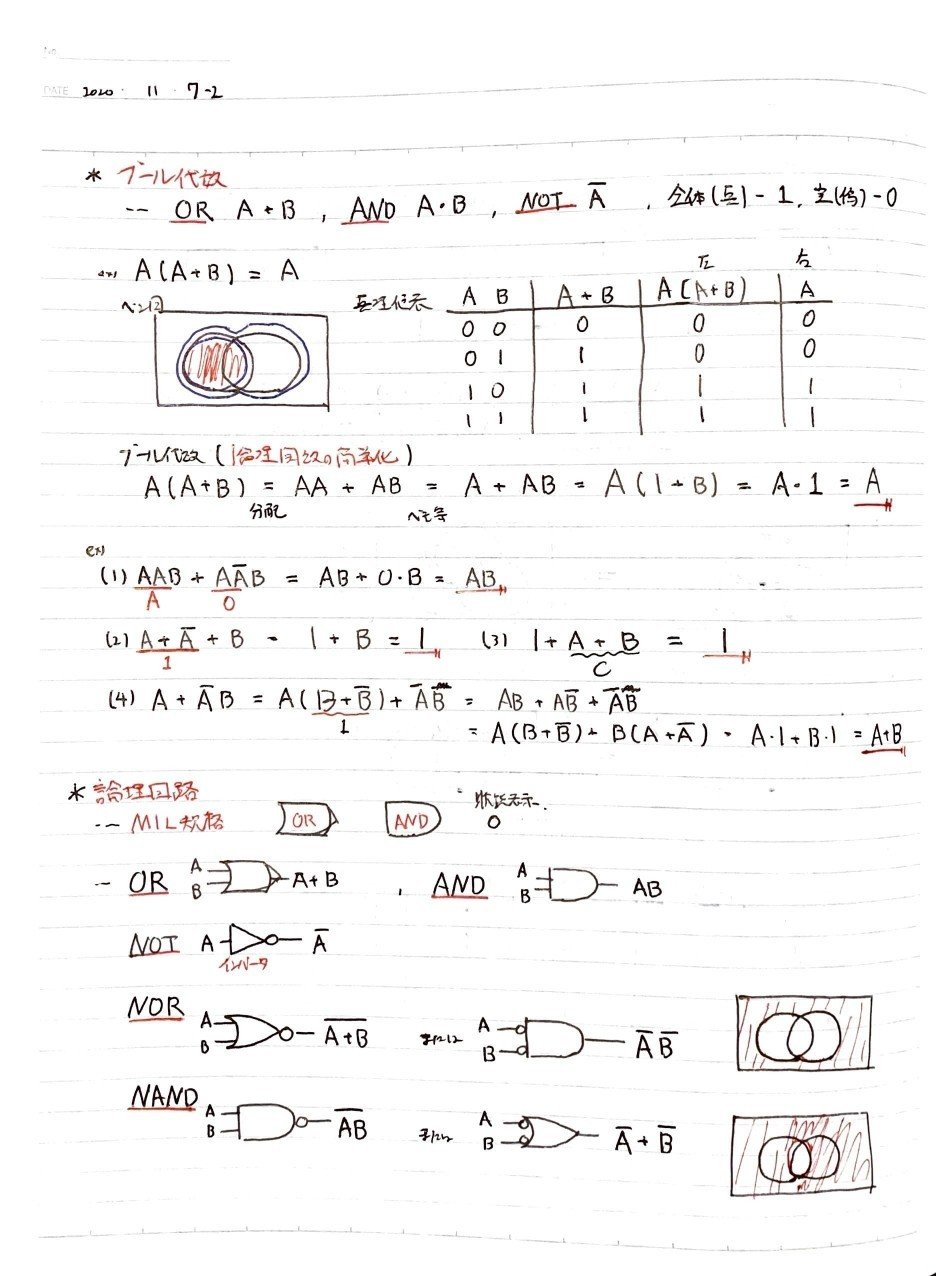 No.
DATE 2020 · 11 · 7-2
* ブール代数
-- OR A + B , AND A・B , NOT A̅ , 全体(真) - 1, 空(偽) - 0
ex) A(A+B) = A
ベン図
真理値表
左 右
A B A + B A(A+B) A
0 0 0 0 0
0 1 1 0 0
1 0 1 1 1
1 1 1 1 1
ブール代数 (論理回路の簡単化)
A(A+B) = AA + AB = A + AB = A(1+B) = A・1 = A
分配 べき等
ex)
(1) AAB + AA̅B = AB + 0・B = AB
A 0
(2) A + A̅ + B = 1 + B = 1 (3) 1 + A + B = 1
1 C
(4) A + A̅B = A(B+B̅) + A̅B = AB + AB̅ + A̅B
1
= A(B+B̅) + B(A+A̅) = A・1 + B・1 = A+B
* 論理回路
-- MIL規格 OR AND 状態表示
-- OR A B A+B , AND A B AB
NOT A A̅
インバータ
NOR A B A̅+̅B̅ または A B A̅ B̅
NAND A B A̅B̅ または A B A̅ + B̅